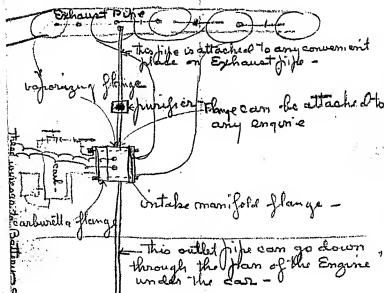 Exhaust Pipe
this pipe is attached to any convenient
place on Exhaust pipe -
vaporizing flange
purifier
flange can be attached to
any engine
coil
carburetta flange
intake manifold flange -
this outlet pipe can go down
through the pan of the Engine,
under the car -